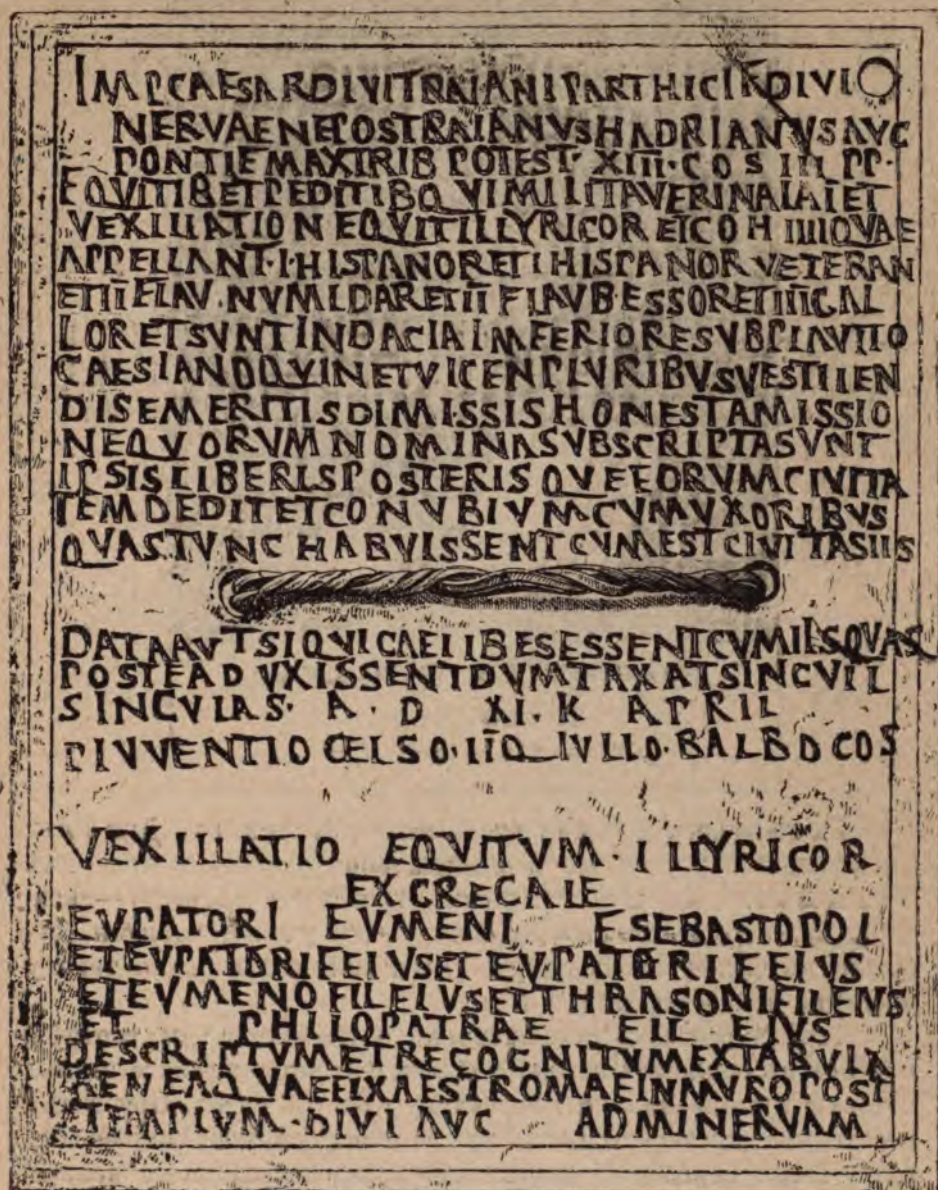 IMP CAESAR DIVI TRAIANI PARTHICI F DIVI O
NERVAE NEPOS TRAIANVS HADRIANVS AVC
PONTIF MAX TRIB POTEST· XIII· COS III PP·
EQVITIB ET PEDITIB QVI MILITAVER IN ALA I ET
VEXILLATION EQVIT ILLYRICOR ET COH IIII QVAE
APPELLANT· I· HISPANOR ET I HISPANOR VETERAN
ET II FLAV· NVMIDAR ET III FLAV BESSOR ET IIII GAL
LOR ET SVNT IN DACIA IMFERIORE SVB PLAVTIO
CAESIANO QVIN ET VICEN PLVRIBVSVE STILIEN
DIS EMERITIS DIMISSIS HONESTA MISSIO
NE QVORVM NOMINA SVBSCRIPTA SVNT
IPSIS LIBERIS POSTERISQVE EORVM CIVITA
TEM DEDIT ET CONVBIVM CVM VXORIBVS
QVAS TVNC HABVISSENT CVM EST CIVITAS IIS
DATA AVT SI QVI CAELIBES ESSENT CVM IIS QVAS
POSTEA DVXISSENT DVMTAXAT SINCVIL
SINCVLAS· A· D XI· K APRIL
P IVVENTIO CELSO· II Q IVLLO· BALBO COS
VEXILLATIO EQVITVM· ILLYRICOR
EX GRECALE
EVPATORI EVMENI F SEBASTOPOL
ET EVPATORI F EIVS ET EVPATORI F EIVS
ET EVMENO FIL EIVS ET THRASONI FIL EIVS
ET PHILOPATRAE FIL EIVS
DESCRIPTVM ET RECOGNITVM EX TABVLA
AENEA QVAE FIXA EST ROMAE IN MVRO POST
TEMPLVM· DIVI AVC AD MINERVAM